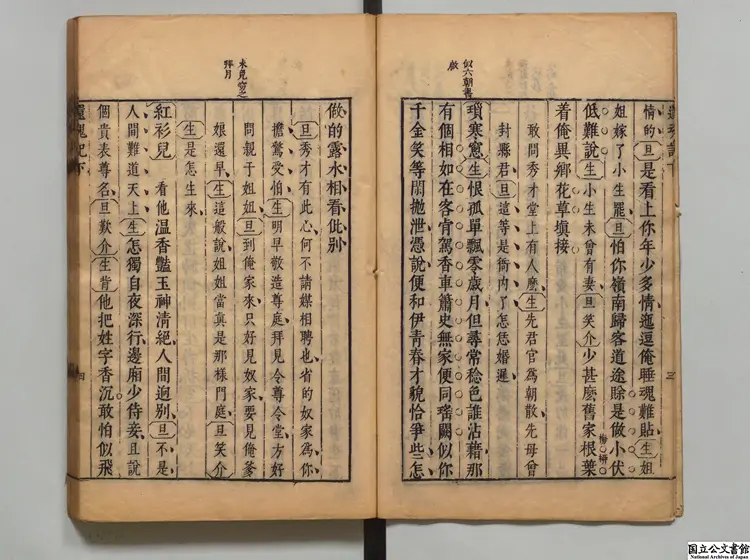 還魂記下 三
似六朝書
啟
情的旦是看上你年少多情迤逗俺睡魂難貼生姐
姐嫁了小生罷旦怕你嶺南歸客道途賒是做小伏
低難說生小生未曾有妻旦笑介少甚麽舊家根葉
着俺異鄉花草塡接
敢問秀才堂上有人麽生先君官爲朝散先母曾
封縣君旦這等是衙内了怎恁婚遲
瑣寒窻生恨孤單飄零歲月但尋常稔色誰沾藉那
有個相如在客肯駕香車蕭史無家便同瑤闕似你
千金笑等閒抛泄憑說便和伊青春才貌恰爭些怎
未見
拜月
做的露水相看仳别
旦秀才有此心何不請媒相聘也省的奴家爲你
擔驚受怕生明早敬造尊庭拜見令尊令堂方好
問親于姐姐旦到俺家來只好見奴家要見俺爹
娘還早生這般說姐姐當眞是那樣門庭旦笑介
生是怎生來
紅衫兒 看他温香豔玉神清絕人間迥别旦不是
人間難道天上生怎獨自夜深行邊廂少侍妾且說
個貴表尊名旦歎介生背他把姓字香沉敢怕似飛
還魂記下 四
国立公文書館
National Archives of Japan